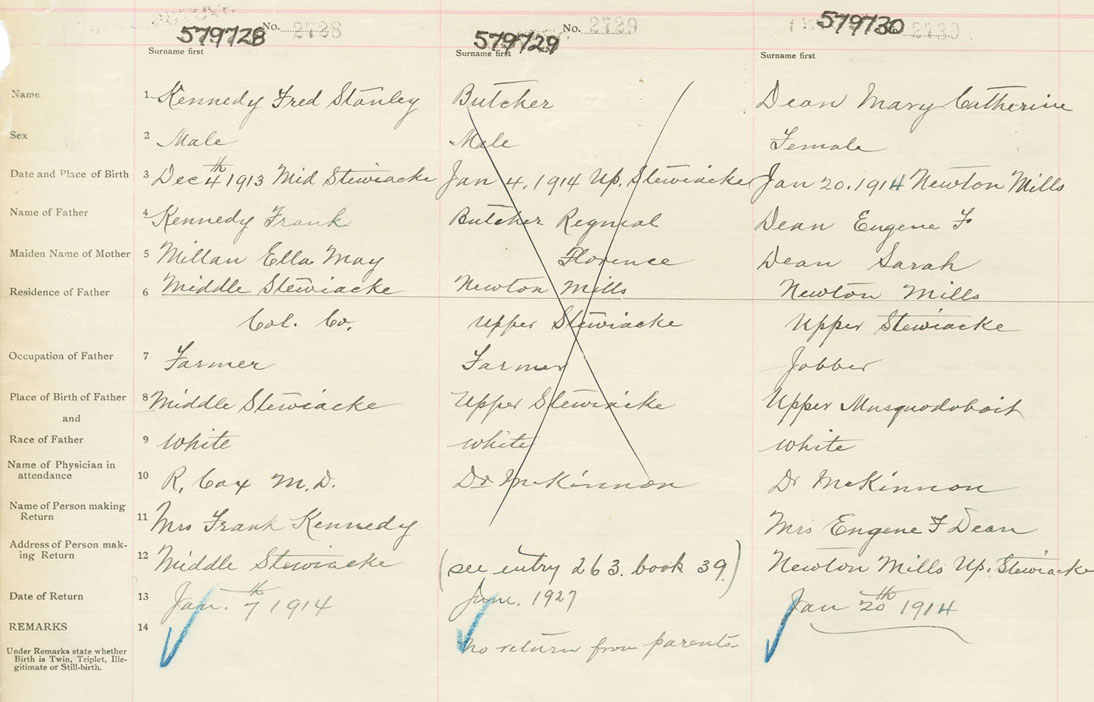 No. 2728 No. 2729 2730
579728 579729 579730
Surname first Surname first Surname first
Name 1 Kennedy Fred Stanley Butcher Dean Mary Catherine
Sex 2 Male Male Female
Date and Place of Birth 3 Dec 4th 1913 Mid Stewiacke Jan 4. 1914 Up. Stewiacke Jan 20. 1914 Newton Mills
Name of Father 4 Kennedy Frank Butcher Reginal Dean Eugene F
Maiden Name of Mother 5 Millan Ella May Florence Dean Sarah
Residence of Father 6 Middle Stewiacke Newton Mills Newton Mills
Col. Co. Upper Stewiacke Upper Stewiacke
Occupation of Father 7 Farmer Farmer Jobber
Place of Birth of Father 8 Middle Stewiacke Upper Stewiacke Upper Musquodoboit
and
Race of Father 9 White White White
Name of Physician in
attendance 10 R. Cox M.D. Dr McKinnon Dr McKinnon
Name of Person making
Return 11 Mrs Frank Kennedy Mrs Eugene F Dean
Address of Person mak-
ing Return 12 Middle Stewiacke (see entry 263. book 39.) Newton Mills Up. Stewiacke
Date of Return 13 Jan. 7th 1914 June. 1927 Jan 20th 1914
REMARKS 14
no return from parents
Under Remarks state whether
Birth is Twin, Triplet, Ille-
gitimate or Still-birth.